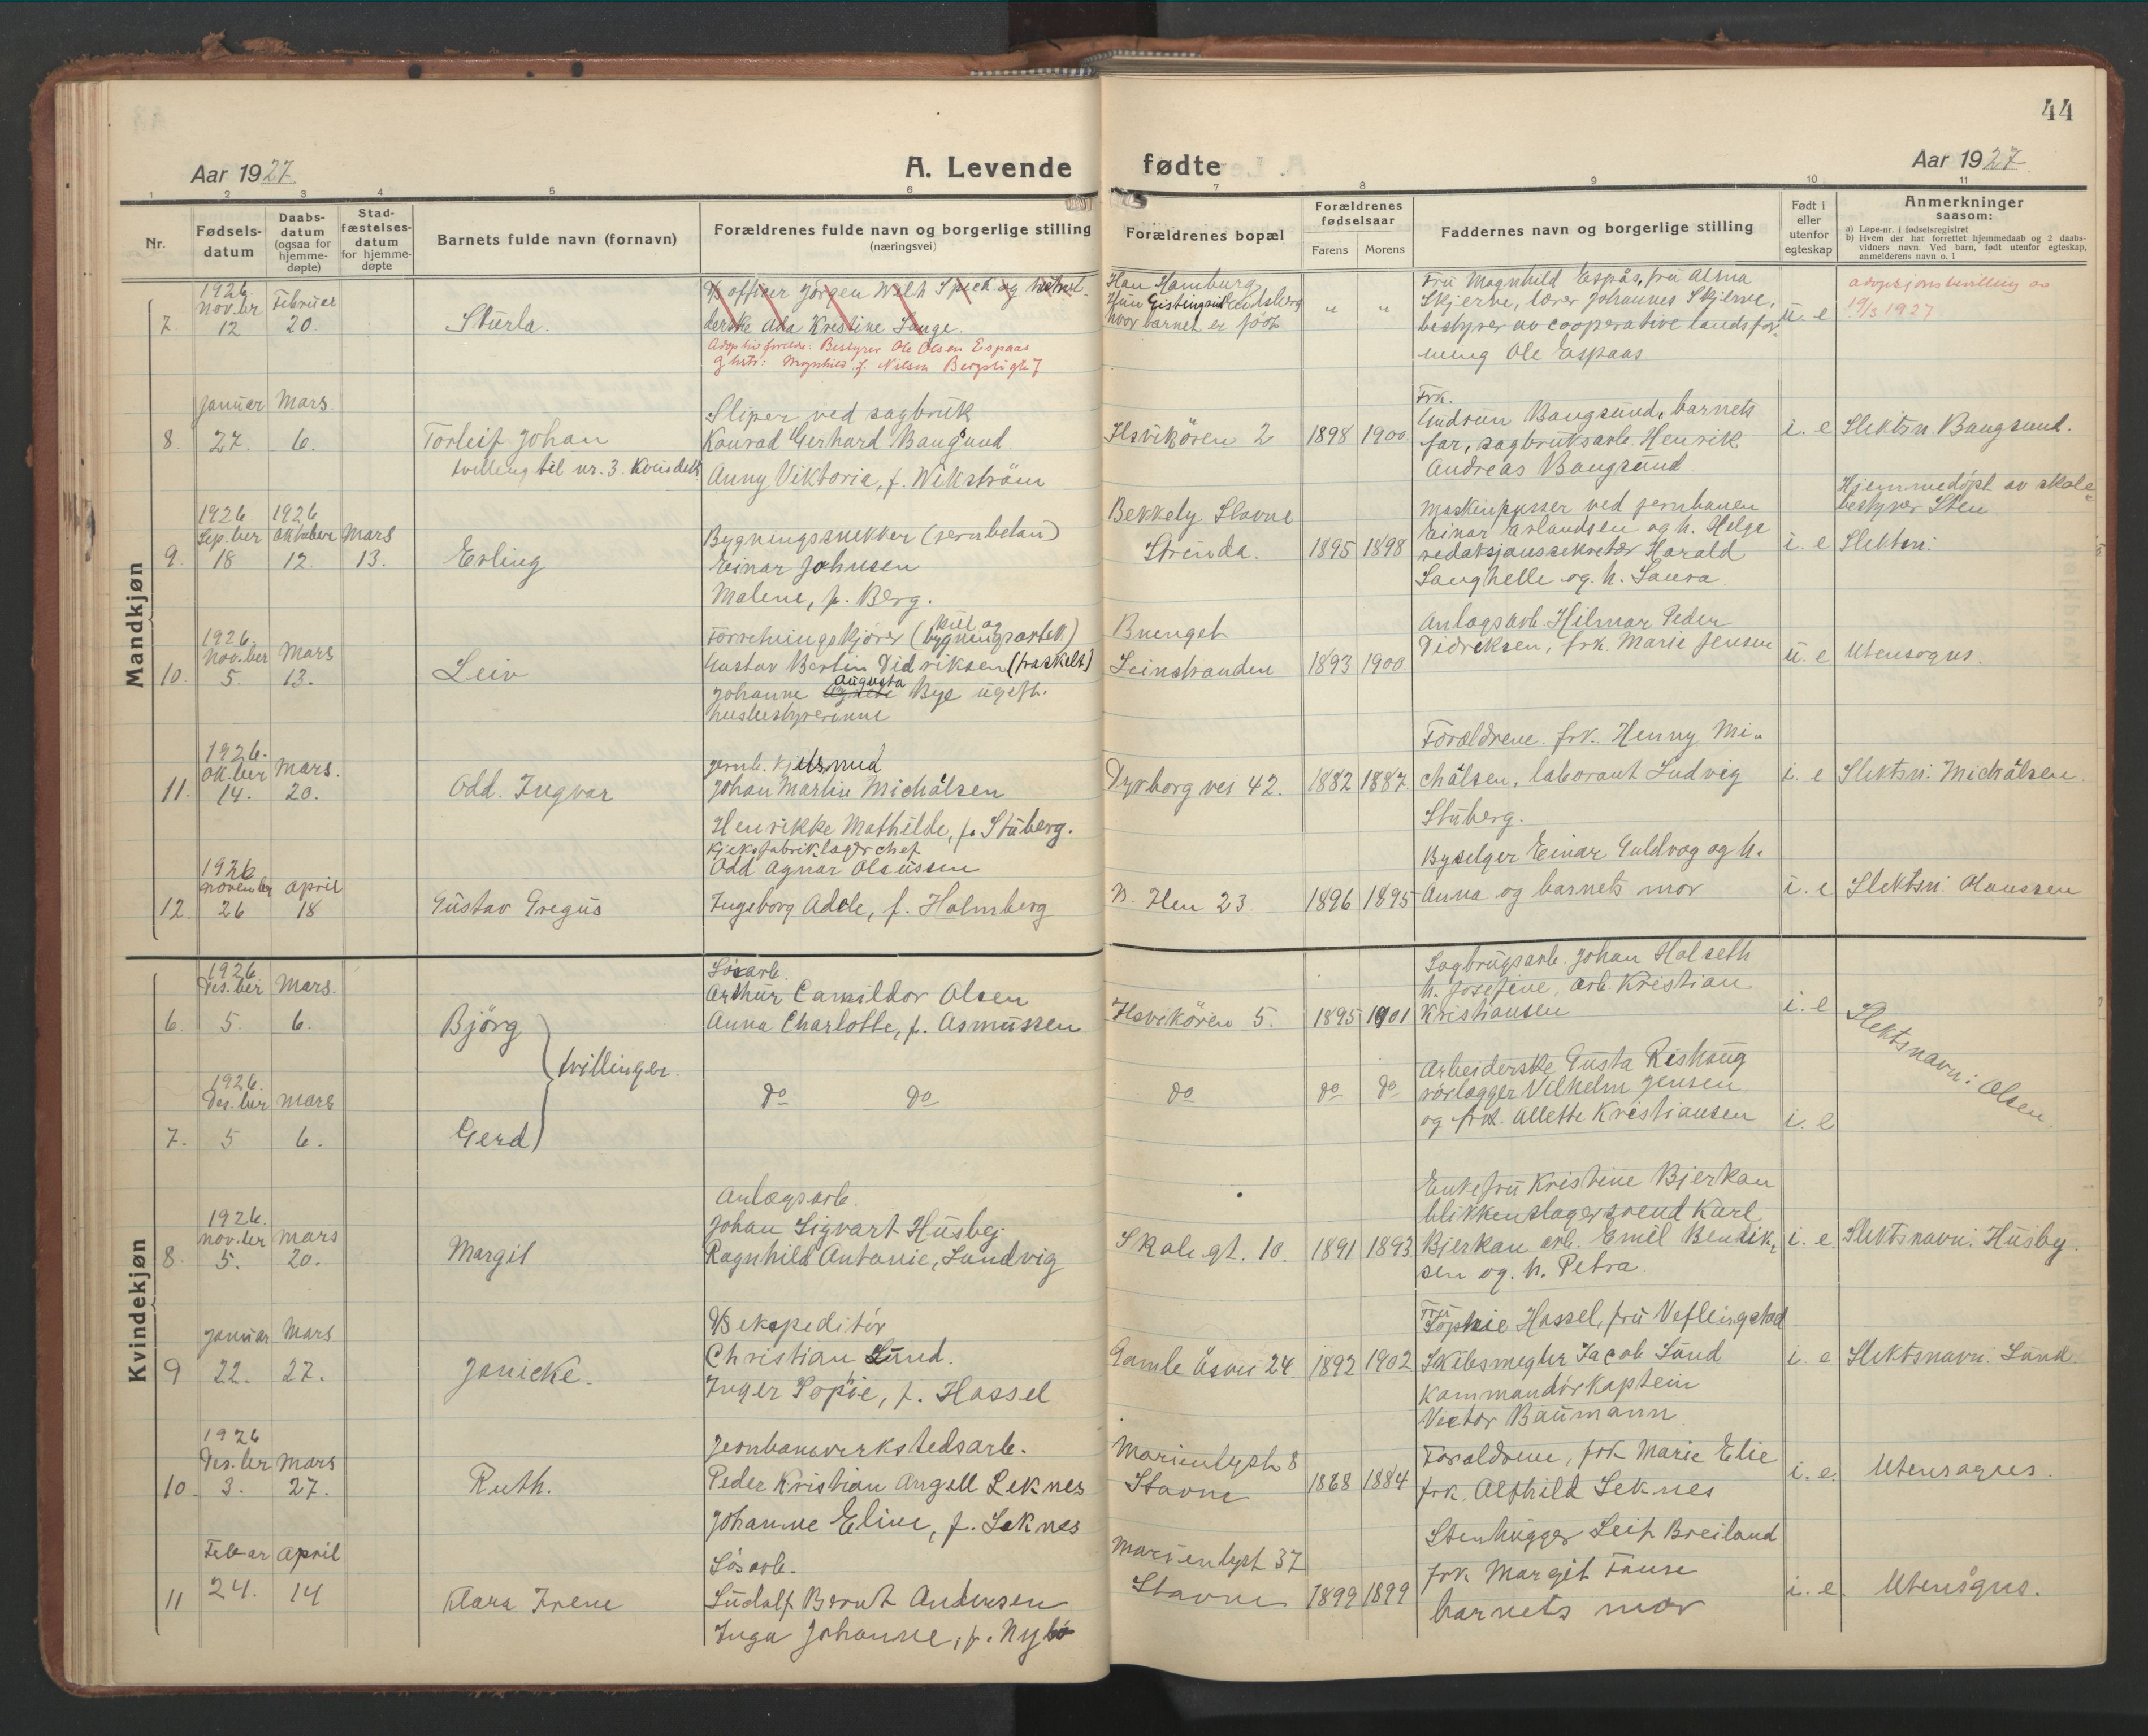 44
Aar 1927
A. Levende fødte
Aar 1927
1 2 3 4 5 6 7 8 9 10 11
Nr.
Fødsels-
datum
Daabs-
datum
(ogsaa for
hjemme-
døpte)
Stad-
fæstelses-
datum
for hjemme-
døpte
Barnets fulde navn (fornavn)
Forældrenes fulde navn og borgerlige stilling
(næringsvei)
Forældrenes bopæl
Forældrenes
fødselsaar
Farens Morens
Faddernes navn og borgerlige stilling
Født i
eller
utenfor
egteskap
Anmerkninger
saasom:
a) Løpe-nr. i fødselsregistret
b) Hvem der har forrettet hjemmedaab og 2 daabs-
vidners navn. Ved barn, født utenfor egteskap,
anmelderens navn o. l
Mandkjøn
7.
1926
Nov.ber
12
Februar
20.
Sturla.
D/S officer Jörgen Wilh Speck og
derske Ada Kristine Lange.
Adoptivforeldre: Bestyrer Ole Olsen Espaas
g hstr: Magnhild f. Nilsen
Han Hamburg
Hun
hvor barnet er født
" "
Fru Magnhild Espås, fru Alma
Skjerve, lærer Johannes Skjerve,
bestyrer av cooperative landsfor-
ening Ole Espaas
u. e
adopsjonsbevilling av
19/3 1927
8.
Januar
27.
Mars
6.
Torleif Johan
tvilling til nr. 3. Kvindekj.
Sliper ved sagbruk
Konrad Gerhard Baugsund
Anny Viktoria, f. Wikström
Ilsvikören 2
1898 1900
Frk.
Gudrun Baugsund, barnets
far, sagbruksarb. Henrik
Andreas Baugsund
i. e
Slektsn. Baugsund.
9.
1926
Sep.ber
18
1926
Oktober
12.
Mars
13.
Erling
Bygningssnekker (jernbetan)
Einar Johnsen
Malene, f. Berg.
Bekkely Stavne
Strinda.
1895 1898
Maskinpusser ved jernbanen
Einar Erlandsen og h. Helga
redaksjonssekretær Harald
Langhelle og h. Laura
i. e
Hjemmedöpt av skole-
bestyrer Sten
Slektsn:
10.
1926
Nov.ber
5.
Mars
13.
Leiv
Forretningskjører (kul og
bygningsartik.)
Gustav Bertin Didriksen (fraskelt)
Johanne Augusta Bye ugift.
husbestyrerinne
Buenget
Leinstranden
1893 1900
Anlagsarb. Hilmar Peder
Didreksen, frk. Marie Jensen
u. e
Utensogns.
11.
1926.
Ok.ber
14.
Mars.
20.
Odd. Ingvar
Jernb.
Johan Martin Michålsen
Henrikke Mathilde, f. Stuberg.
Dyrborg vei 42.
1882 1887.
Foreldrene. frk. Henny Mi-
chålsen, laborant Ludvig
Stuberg.
i. e
Slektsn: Michålsen.
12.
1926
November
26
April
18
Gustav Gregus
Kjeksfabriklagerchef
Odd Agnar Olaussen
Ingeborg Adele, f. Holmberg
N. Ilen 23
1896 1895
Byselger Einar Guldvog og h.
Anna og barnets mor
i. e
Slektsn: Olaussen
Kvindekjøn
6.
1926
Des.ber
5.
Mars.
6.
Björg
Løsarb.
Arthur Camildor Olsen
Anna Charlotte, f. Asmussen
Ilsvikören 5.
1895 1901
Sagbrugsarb. Johan Halseth
h. Josefine, arb. Kristian
Kristiansen
i. e
Slektsnavn: Olsen
tvillinger.
7.
1926.
Des.ber
5
Mars
6.
Gerd
do do
do
do do
Arbeiderske Gusta Rishaug
rørlægger Vilhelm Jensen
og frk. Allette Kristiansen
i. e
8.
1926.
Nov.ber
5.
Mars
20.
Margit
Anlægsarb.
Johan Sigvart Husbey
Ragnhild Antonie, Sandvig
Skolegt. 10
1891 1893
Enkefru Kristine Bjerkan
blikkenslagersvend Karl
Bjerkan arb. Emil Bendik-
sen og. h. Petra.
i. e
Slektsnavn: Husby.
9
Januar
22.
Mars
27.
Janicke.
D/S ekspeditör
Christian Lund.
Inger Sopie, f. Hassel
Gamle Åsvei 24
1892 1902
Fru
Sophie Hassel, fru Veflingstad
Skibsmegler Jacob Lund
Kammandörkaptein
Victor Baumann
i. e
Slektsnavn: Lund.
10.
1926
Des.ber
3.
Mars
27.
Ruth.
Jernbaneverkstedsarb.
Peder Kristian Angell Leknes
Johanne Eline, f. Leknes
Marienlyst 8
Stavne
1868 1884
Foreldrene, frk Marie Elie
frk. Alfhild Leknes
i. e
Utensogns.
11
Feb ar
24.
April
14
Clara Irene
Løsarb.
Ludolf Bernt Andersen
Inga Johanne, f. Nybø
Marienlyst 37
Stavne
1899 1899
Stenhugger Leif Breiland
frk. Margit Fause
barnets mor
i. e.
Utensogns.